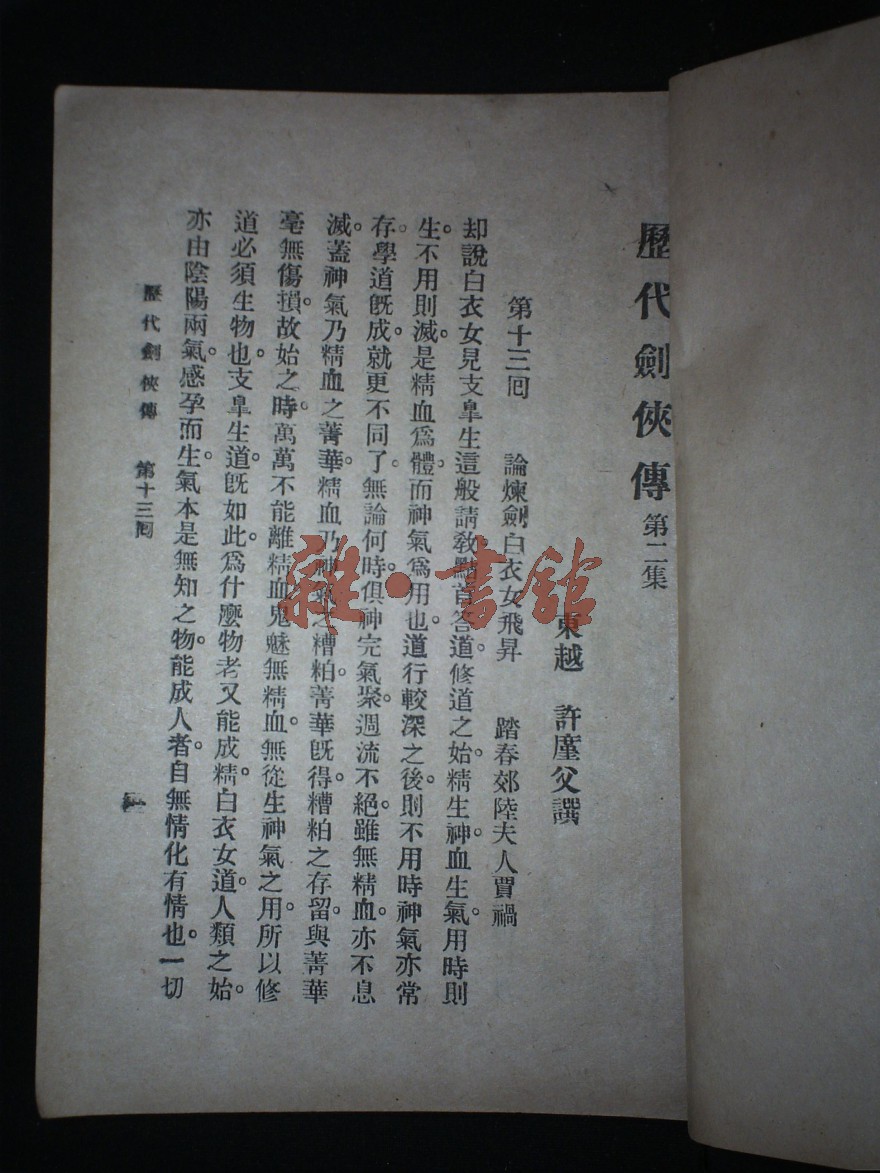 歷代劍俠傳第二集
東越 許廑父譔
第十三囘 論煉劍白衣女飛昇 踏春郊陸夫人賈禍
却說白衣女見支臯生這般請教。點首答道。修道之始。精生神。血生氣。用時則
生。不用則滅。是精血爲體。而神氣爲用也。道行較深之後。則不用時。神氣亦常
存。學道旣成。就更不同了。無論何時。俱神完氣聚。週流不絕。雖無精血。亦不息
滅。蓋神氣乃精血之菁華。精血乃神氣之糟粕。菁華旣得。糟粕之存留。與菁華
毫無傷損。故始之時。萬萬不能離精血。鬼魅無精血。無從生神氣之用。所以修
道必須生物也。支臯生道。旣如此。爲什麼物老又能成精。白衣女道。人類之始。
亦由陰陽兩氣。感孕而生。氣本是無知之物。能成人者。自無情化有情也。一切
歷代劍俠傳 第十三囘
一
雜·書館